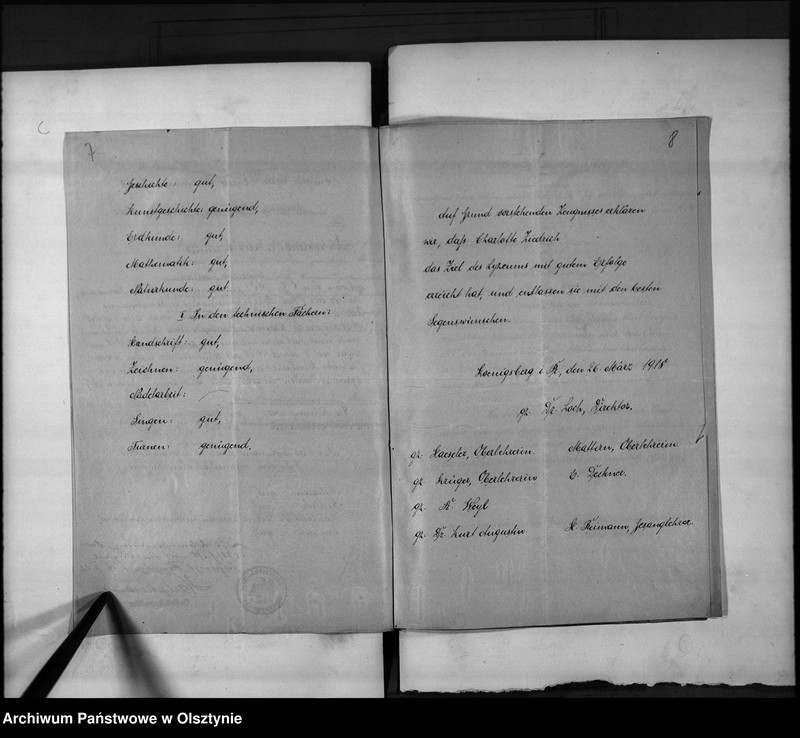 7
Geschichte: gut,
Kunstgeschichte: genügend,
Erdkunde: gut,
Mathematik: gut,
Naturkunde: gut.
In den technischen Fächern:
Handschrift: gut,
Zeichnen: genügend,
Nadelarbeit: —
Singen: gut,
Turnen: genügend.
8
Auf Grund vorstehenden Zeugnisses erklären
wir, daß Charlotte Ziedrich
das Ziel des Lyzeums mit gutem Erfolge
erreicht hat, und entlassen sie mit den besten
Segenswünschen.
Koenigsberg i. Pr., den 26. März 1915
gz. Dr. Loch, Direktor.
gz. Haeseler, Oberlehrerin Mattern, Oberlehrerin
gz. Krüger, Oberlehrerin E. Deckner.
gz. Weyl
gz. Dr. Kurt Augustin Reimann, Gesanglehrer.
Archiwum Państwowe w Olsztynie